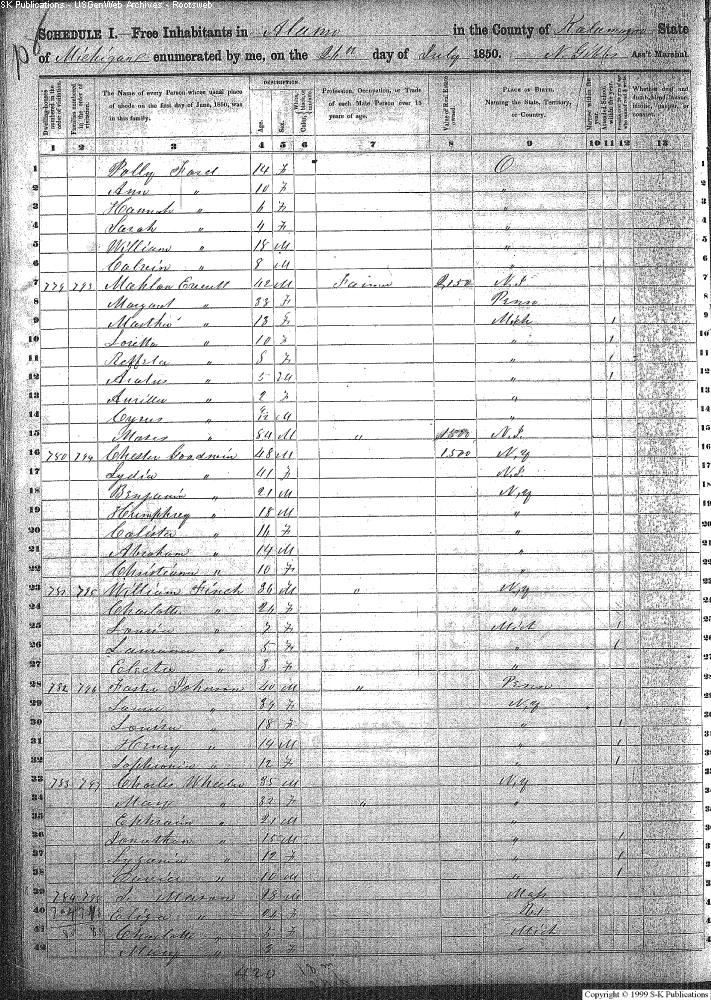 SK Publications - USGenWeb Archives - Rootsweb
SCHEDULE I. Free Inhabitants in Alamo in the County of Kalamazoo State
of Michigan enumerated by me, on the 26th day of July 1850. N. Gibbs Ass't Marshal.
Dwelling-houses numbered in the order of visitation. Families numbered in the order of visitation. The Name of every Person whose usual place of abode on the first day of June, 1850, was in this family. DESCRIPTION. Age. Sex. Profession, Occupation, or Trade of each Male Person over 15 years of age. Value of Real Estate owned. PLACE OF BIRTH. Naming the State, Territory, or Country. Married within the year. Attended School within the year. Whether deaf and dumb, blind, insane, idiotic, pauper, or convict.
1 2 3 4 5 6 7 8 9 10 11 12 13
1 Polly Ford 14 F O 1
2 Ann " 10 F " 2
3 Hannah " 6 F " 3
4 Sarah " 4 F " 4
5 William " 18 M " 5
6 Calvin " 8 M " 6
7 779 793 Mahlon Everett 42 M Farmer 2,150 N.J. 7
8 Margaret " 33 F Penn 8
9 Martha " 13 F Mich 1 9
10 Loretta " 10 F " 1 10
11 " 8 F " 1 11
12 " 5 M " 1 12
13 " 2 F " 13
14 Cyrus " M " 14
15 Moses " 84 M " 1500 N.J. 15
16 780 794 Chester Goodwin 48 M 1500 N.Y 16
17 Lydia " 41 F N.J. 17
18 Benjamin " 21 M N.Y 18
19 Humphrey " 18 M " 19
20 Calista " 16 F " 20
21 Abraham " 14 M " 21
22 Christiana " 10 F " 22
23 781 795 William Finch 36 M " N.Y 23
24 Charlotte " 26 F " 24
25 Louisa " 7 F Mich 1 25
26 " 5 F " 1 26
27 Electa " 3 F " 27
28 782 796 Foster Johnson 40 M " Penn 28
29 " 39 F N.Y 29
30 Louisa " 18 F " 1 30
31 Henry " 14 M " 1 31
32 Sophronia " 12 F " 1 32
33 783 797 Charles Wheeler 35 M N.Y 33
34 Mary " 32 F " " 34
35 Ephraim " 21 M " 35
36 Jonathan " 15 M " 1 36
37 " 12 F " 1 37
38 " 10 M " 1 38
39 784 798 Mason 28 M Mass 39
40 Eliza " F 40
41 Charlotte " 5 F Mich 41
42 Mary " 3 F " 42
420
Copyright © 1999 S-K Publications